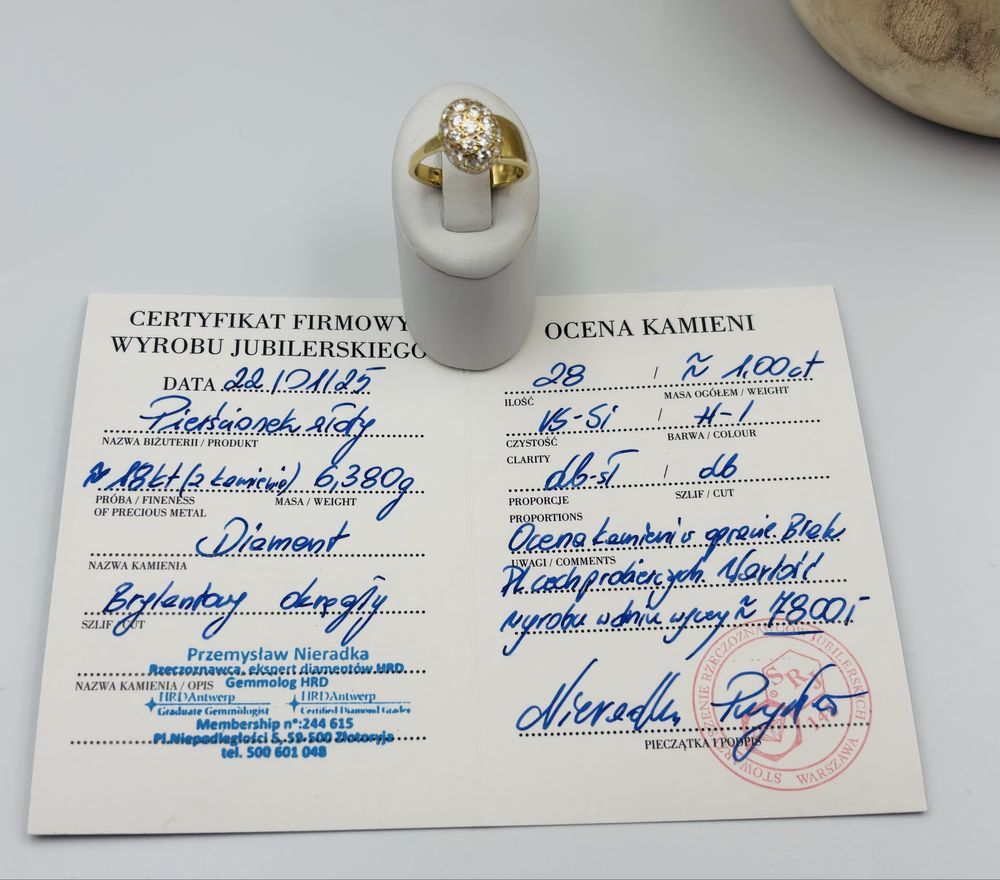 CERTYFIKAT FIRMOWY
WYROBU JUBILERSKIEGO
DATA 22/01/25
Pierścionek złoty
NAZWA BIŻUTERII / PRODUKT
≈ 18kt (z kamieniami) 6,380g
PRÓBA / FINENESS MASA / WEIGHT
OF PRECIOUS METAL
Diament
NAZWA KAMIENIA
Brylantowy okrągły
SZLIF / CUT
Przemysław Nieradka
Rzeczoznawca, ekspert diamentów HRD
NAZWA KAMIENIA / OPIS
Gemmolog HRD
HRDAntwerp HRDAntwerp
Graduate Gemmologist Certified Diamond Grader
Membership n°:244 615
Pl.Niepodległości 5, 59-500 Złotoryja
tel. 500 601 048
OCENA KAMIENI
28 / ≈ 1,00ct
ILOŚĆ MASA OGÓŁEM / WEIGHT
VS-Si / H-I
CZYSTOŚĆ BARWA / COLOUR
CLARITY
db-śr / db
PROPORCJE SZLIF / CUT
PROPORTIONS
Ocena kamieni w oprawie. Brak
UWAGI / COMMENTS
PL cech probierczych. Wartość
wyrobu w dniu wyceny ≈ 7800,-
Nieradka Przemysław
PIECZĄTKA I PODPIS
STOWARZYSZENIE RZECZOZNAWCÓW JUBILERSKICH WARSZAWA
SRJ